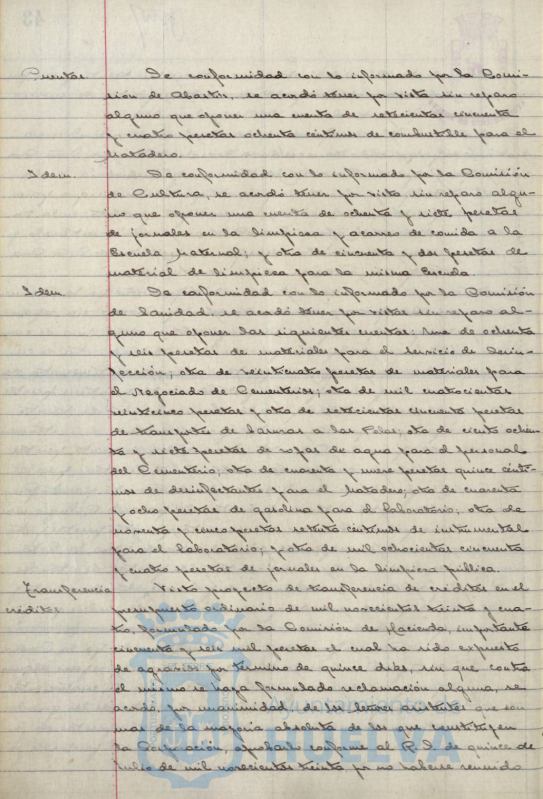 Cuentas. De conformidad con lo informado por la Comi-
sión de Abastos, se acordó tener por vista sin reparo
alguno que oponer una cuenta de setecientas cincuenta
y cuatro pesetas ochenta céntimos de combustible para el
Matadero.
Idem. De conformidad con lo informado por la Comisión
de Cultura, se acordó tener por vista sin reparo algu-
no que oponer una cuenta de ochenta y siete pesetas
de jornales en la limpieza y acarreo de comida a la
Escuela Maternal; y otra de cincuenta y dos pesetas de
material de limpieza para la misma Escuela.
Idem. De conformidad con lo informado por la Comisión
de Sanidad, se acordó tener por vistas sin reparo al-
guno que oponer las siguientes cuentas: Una de ochenta
y seis pesetas de materiales para el servicio de Desin-
fección; otra de veinticuatro pesetas de materiales para
el Negociado de Cementerios; otra de mil cuatrocientas
veinticinco pesetas y otra de setecientas cincuenta pesetas
de transportes de basuras a las ; otra de ciento ochen-
ta y siete pesetas de ropas de agua para el personal
del Cementerio; otra de cuarenta y nueve pesetas quince cénti-
mos de desinfectantes para el Matadero; otra de cuarenta
y ocho pesetas de gasolina para el laboratorio; otra de
noventa y cinco pesetas setenta céntimos de instrumental
para el laboratorio; y otra de mil ochocientas cincuenta
y cuatro pesetas de jornales en la limpieza pública.
Transferencia Visto proyecto de transferencia de créditos en el
créditos presupuesto ordinario de mil novecientos treinta y cua-
tro, formulado por la Comisión de Hacienda, importante
cincuenta y seis mil pesetas el cual ha sido expuesto
de agravios por término de quince días, sin que contra
el mismo se haya formulado reclamación alguna, se
acordó, por unanimidad de los señores asistentes que son
mas de la mayoría absoluta de los que constituyen
la Corporación, aprobarlo conforme al R. D. de quince de
Julio de mil novecientos treinta por no haberse reunido
HUELVA